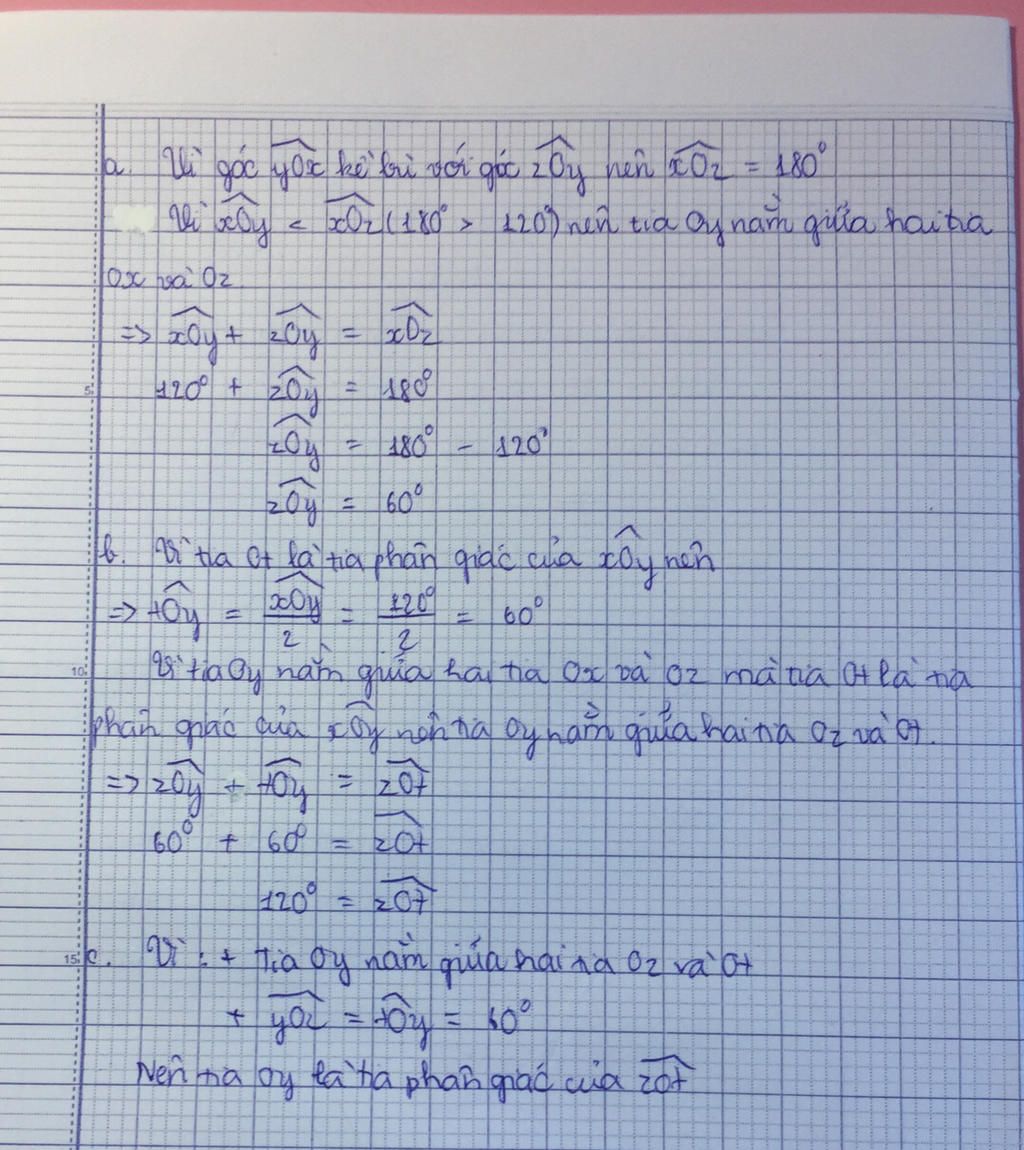 a. Vì góc yOx kề bù với góc zOy nên xOz = 180°
Vì xOy < xOz (180° > 120°) nên tia Oy nằm giữa hai tia
Ox và Oz
=> xOy + zOy = xOz
5 120° + zOy = 180°
zOy = 180° - 120°
zOy = 60°
b. Vì tia Ot là tia phân giác của xOy nên
=> tOy = xOy/2 = 120°/2 = 60°
10 Vì tia Oy nằm giữa hai tia Ox và Oz mà tia Ot là tia
phân giác của xOy nên tia Oy nằm giữa hai tia Oz và Ot.
=> zOy + tOy = zOt
60° + 60° = zOt
120° = zOt
15 c. Vì : + Tia Oy nằm giữa hai tia Oz và Ot
+ yOz = tOy = 60°
Nên tia Oy là tia phân giác của zOt